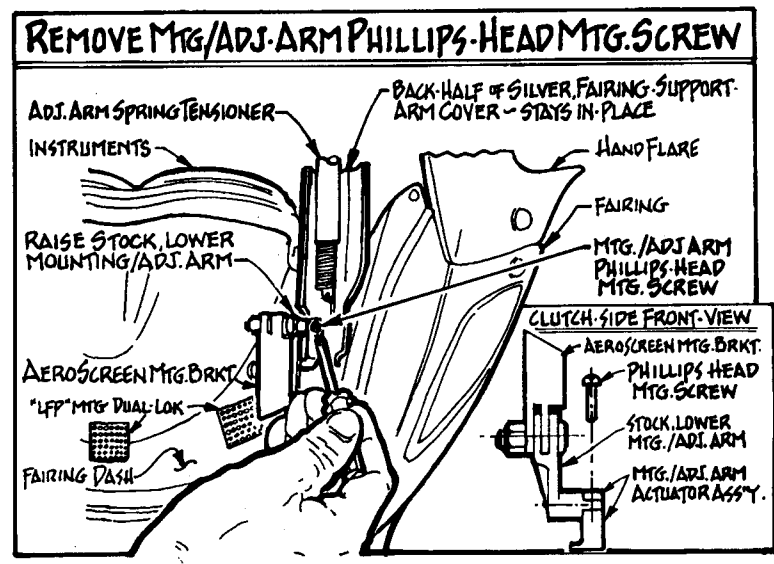 REMOVE MTG/ADJ·ARM PHILLIPS·HEAD MTG. SCREW
ADJ. ARM SPRING TENSIONER
BACK·HALF OF SILVER, FAIRING·SUPPORT·
ARM COVER ~ STAYS IN·PLACE
INSTRUMENTS
HAND FLARE
FAIRING
RAISE STOCK, LOWER
MOUNTING/ADJ. ARM
MTG./ADJ ARM
PHILLIPS·HEAD
MTG. SCREW
AEROSCREEN MTG. BRKT.
"LFP" MTG DUAL·LOK
FAIRING DASH
CLUTCH·SIDE FRONT·VIEW
AEROSCREEN MTG. BRKT.
PHILLIPS HEAD
MTG. SCREW
STOCK, LOWER
MTG./ADJ. ARM
MTG./ADJ. ARM
ACTUATOR ASS'Y.